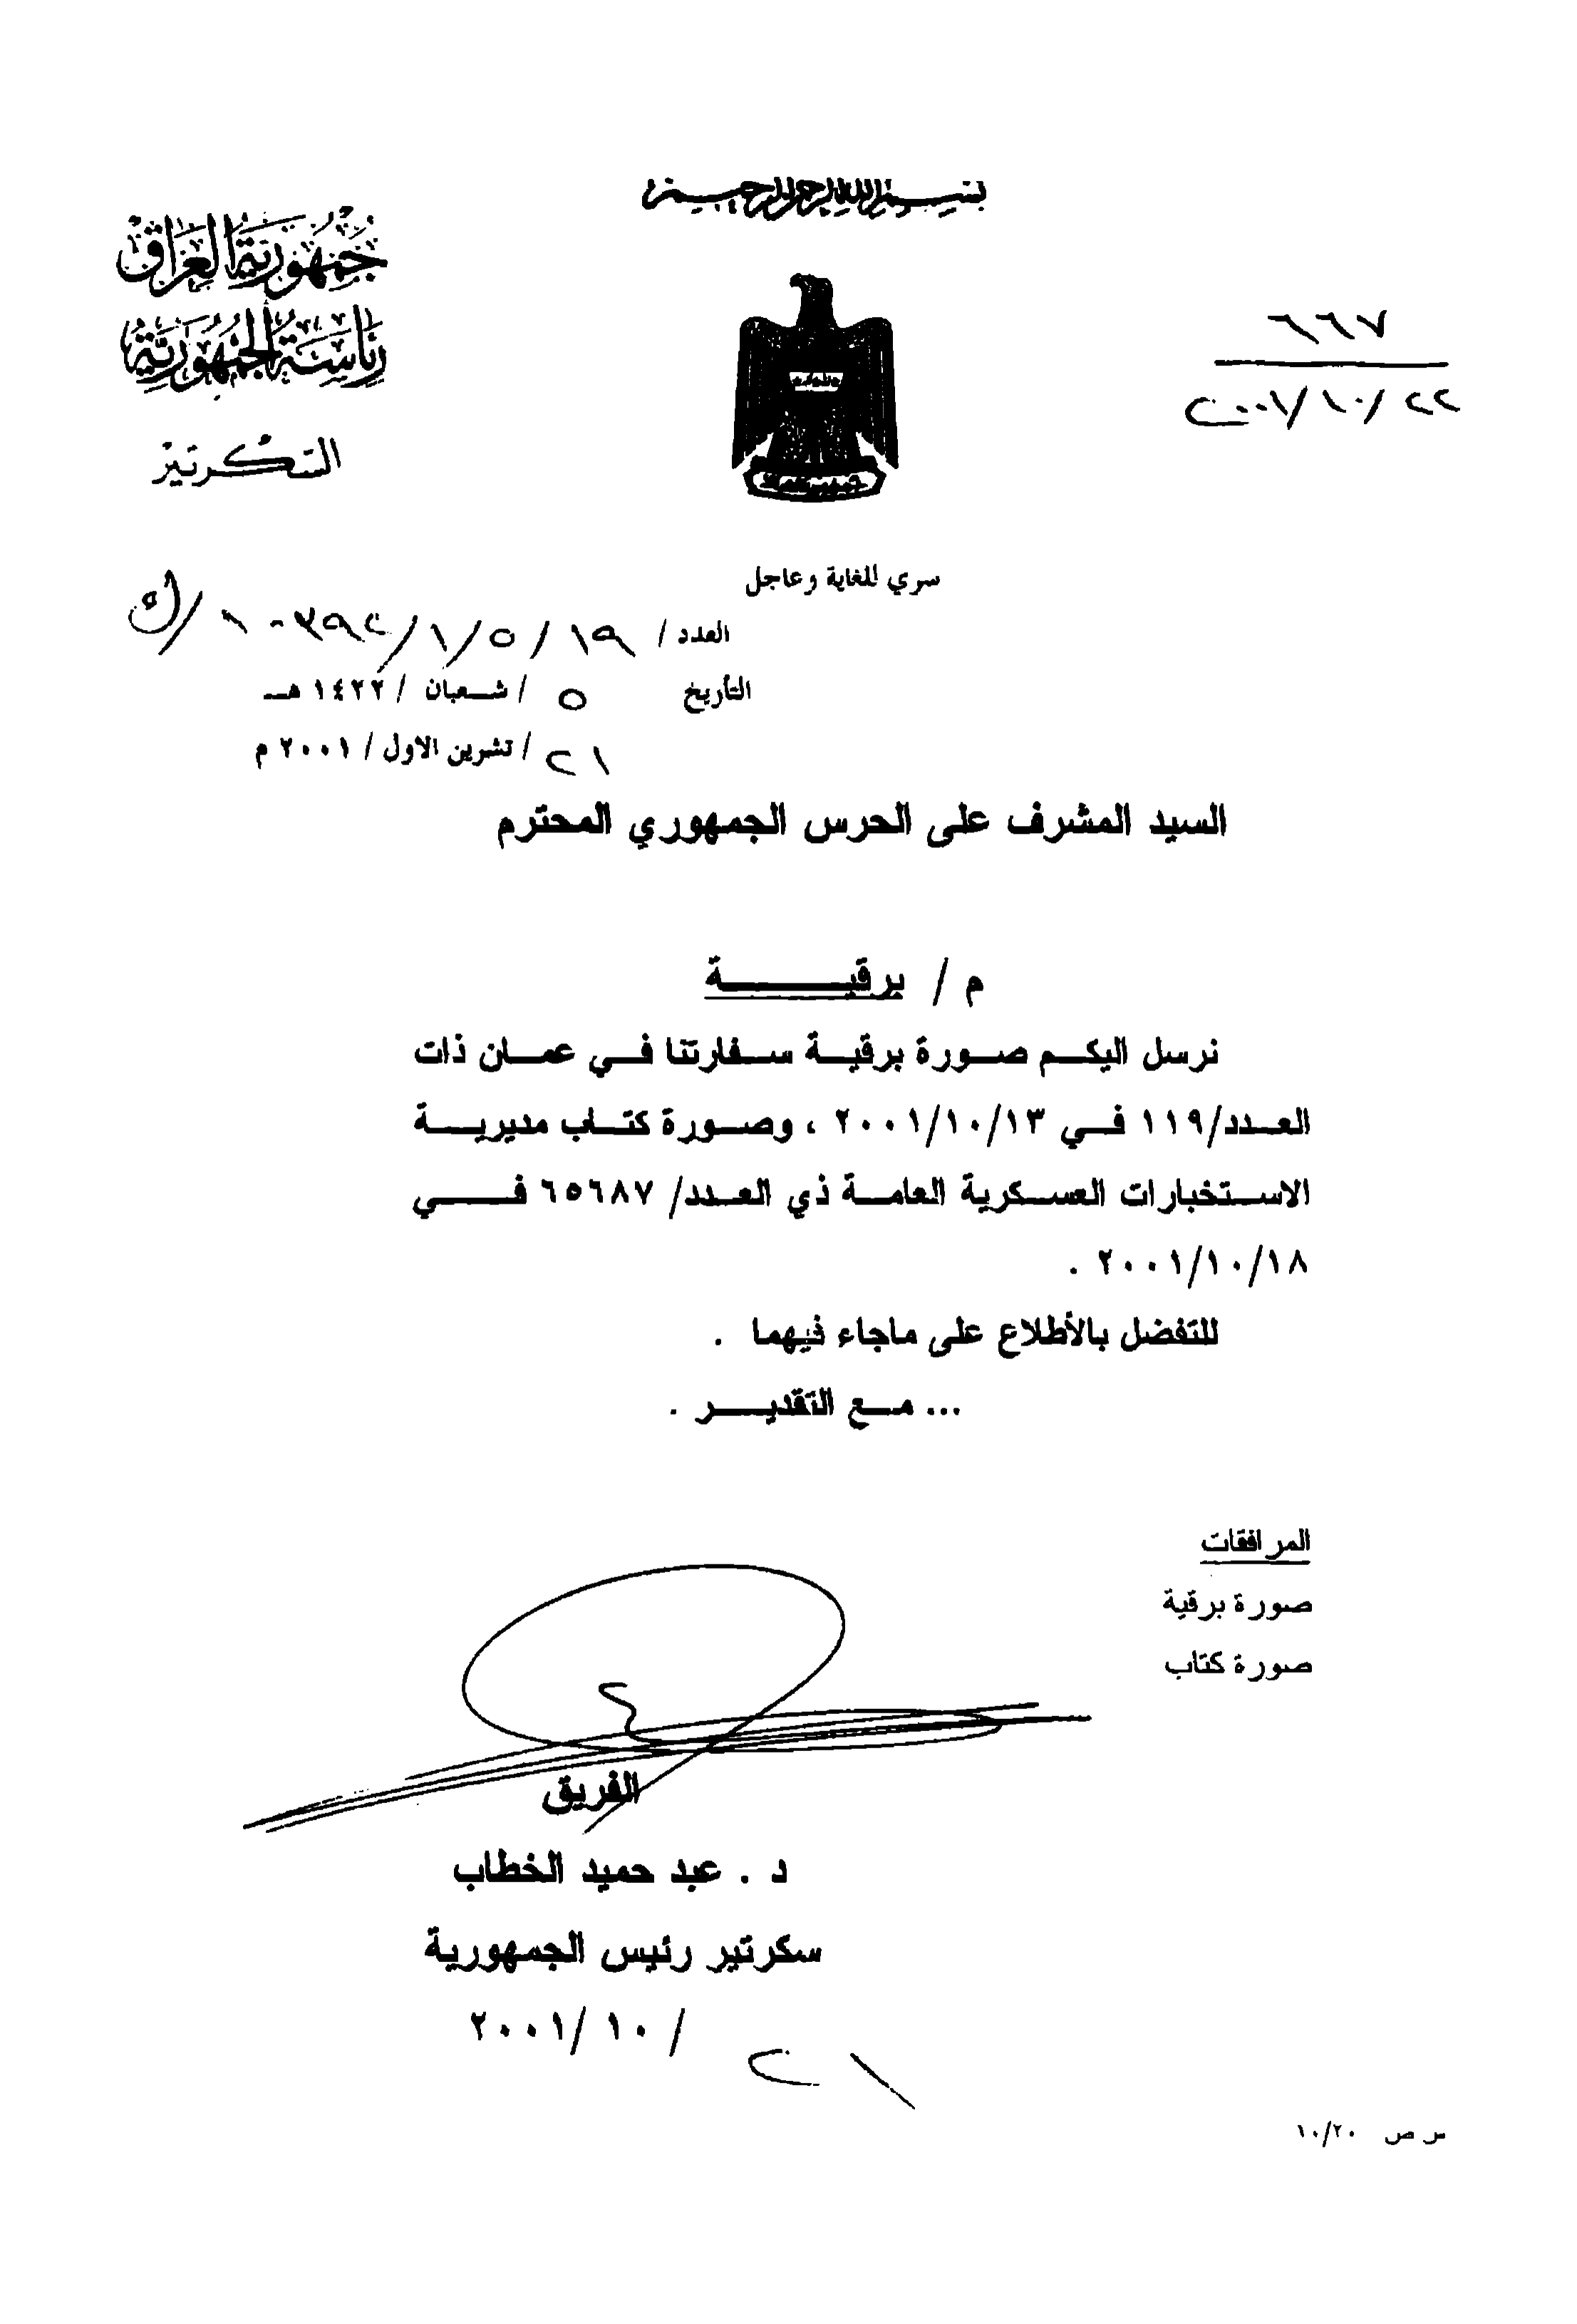 بسم الله الرحمن الرحيم
جمهورية العراق
رئاسة الجمهورية
السكرتير
٦٦٧
٢٠٠١/١٠/٢٢
سري للغاية وعاجل
العدد / ١٩/٥/١/
التأريخ ٥ / شعبان / ١٤٢٢ هـ
٢١ / تشرين الاول / ٢٠٠١ م
السيد المشرف على الحرس الجمهوري المحترم
م / برقية
نرسل اليكم صورة برقية سفارتنا في عمان ذات
العدد/١١٩ في ٢٠٠١/١٠/١٣ ، وصورة كتاب مديرية
الاستخبارات العسكرية العامة ذي العدد/ ٦٥٦٨٧ في
٢٠٠١/١٠/١٨ .
للتفضل بالأطلاع على ماجاء فيهما .
... مع التقدير .
المرافقات
صورة برقية
صورة كتاب
الفريق
د . عبد حميد الخطاب
سكرتير رئيس الجمهورية
٢١ / ١٠ /٢٠٠١
س ص ١٠/٢٠